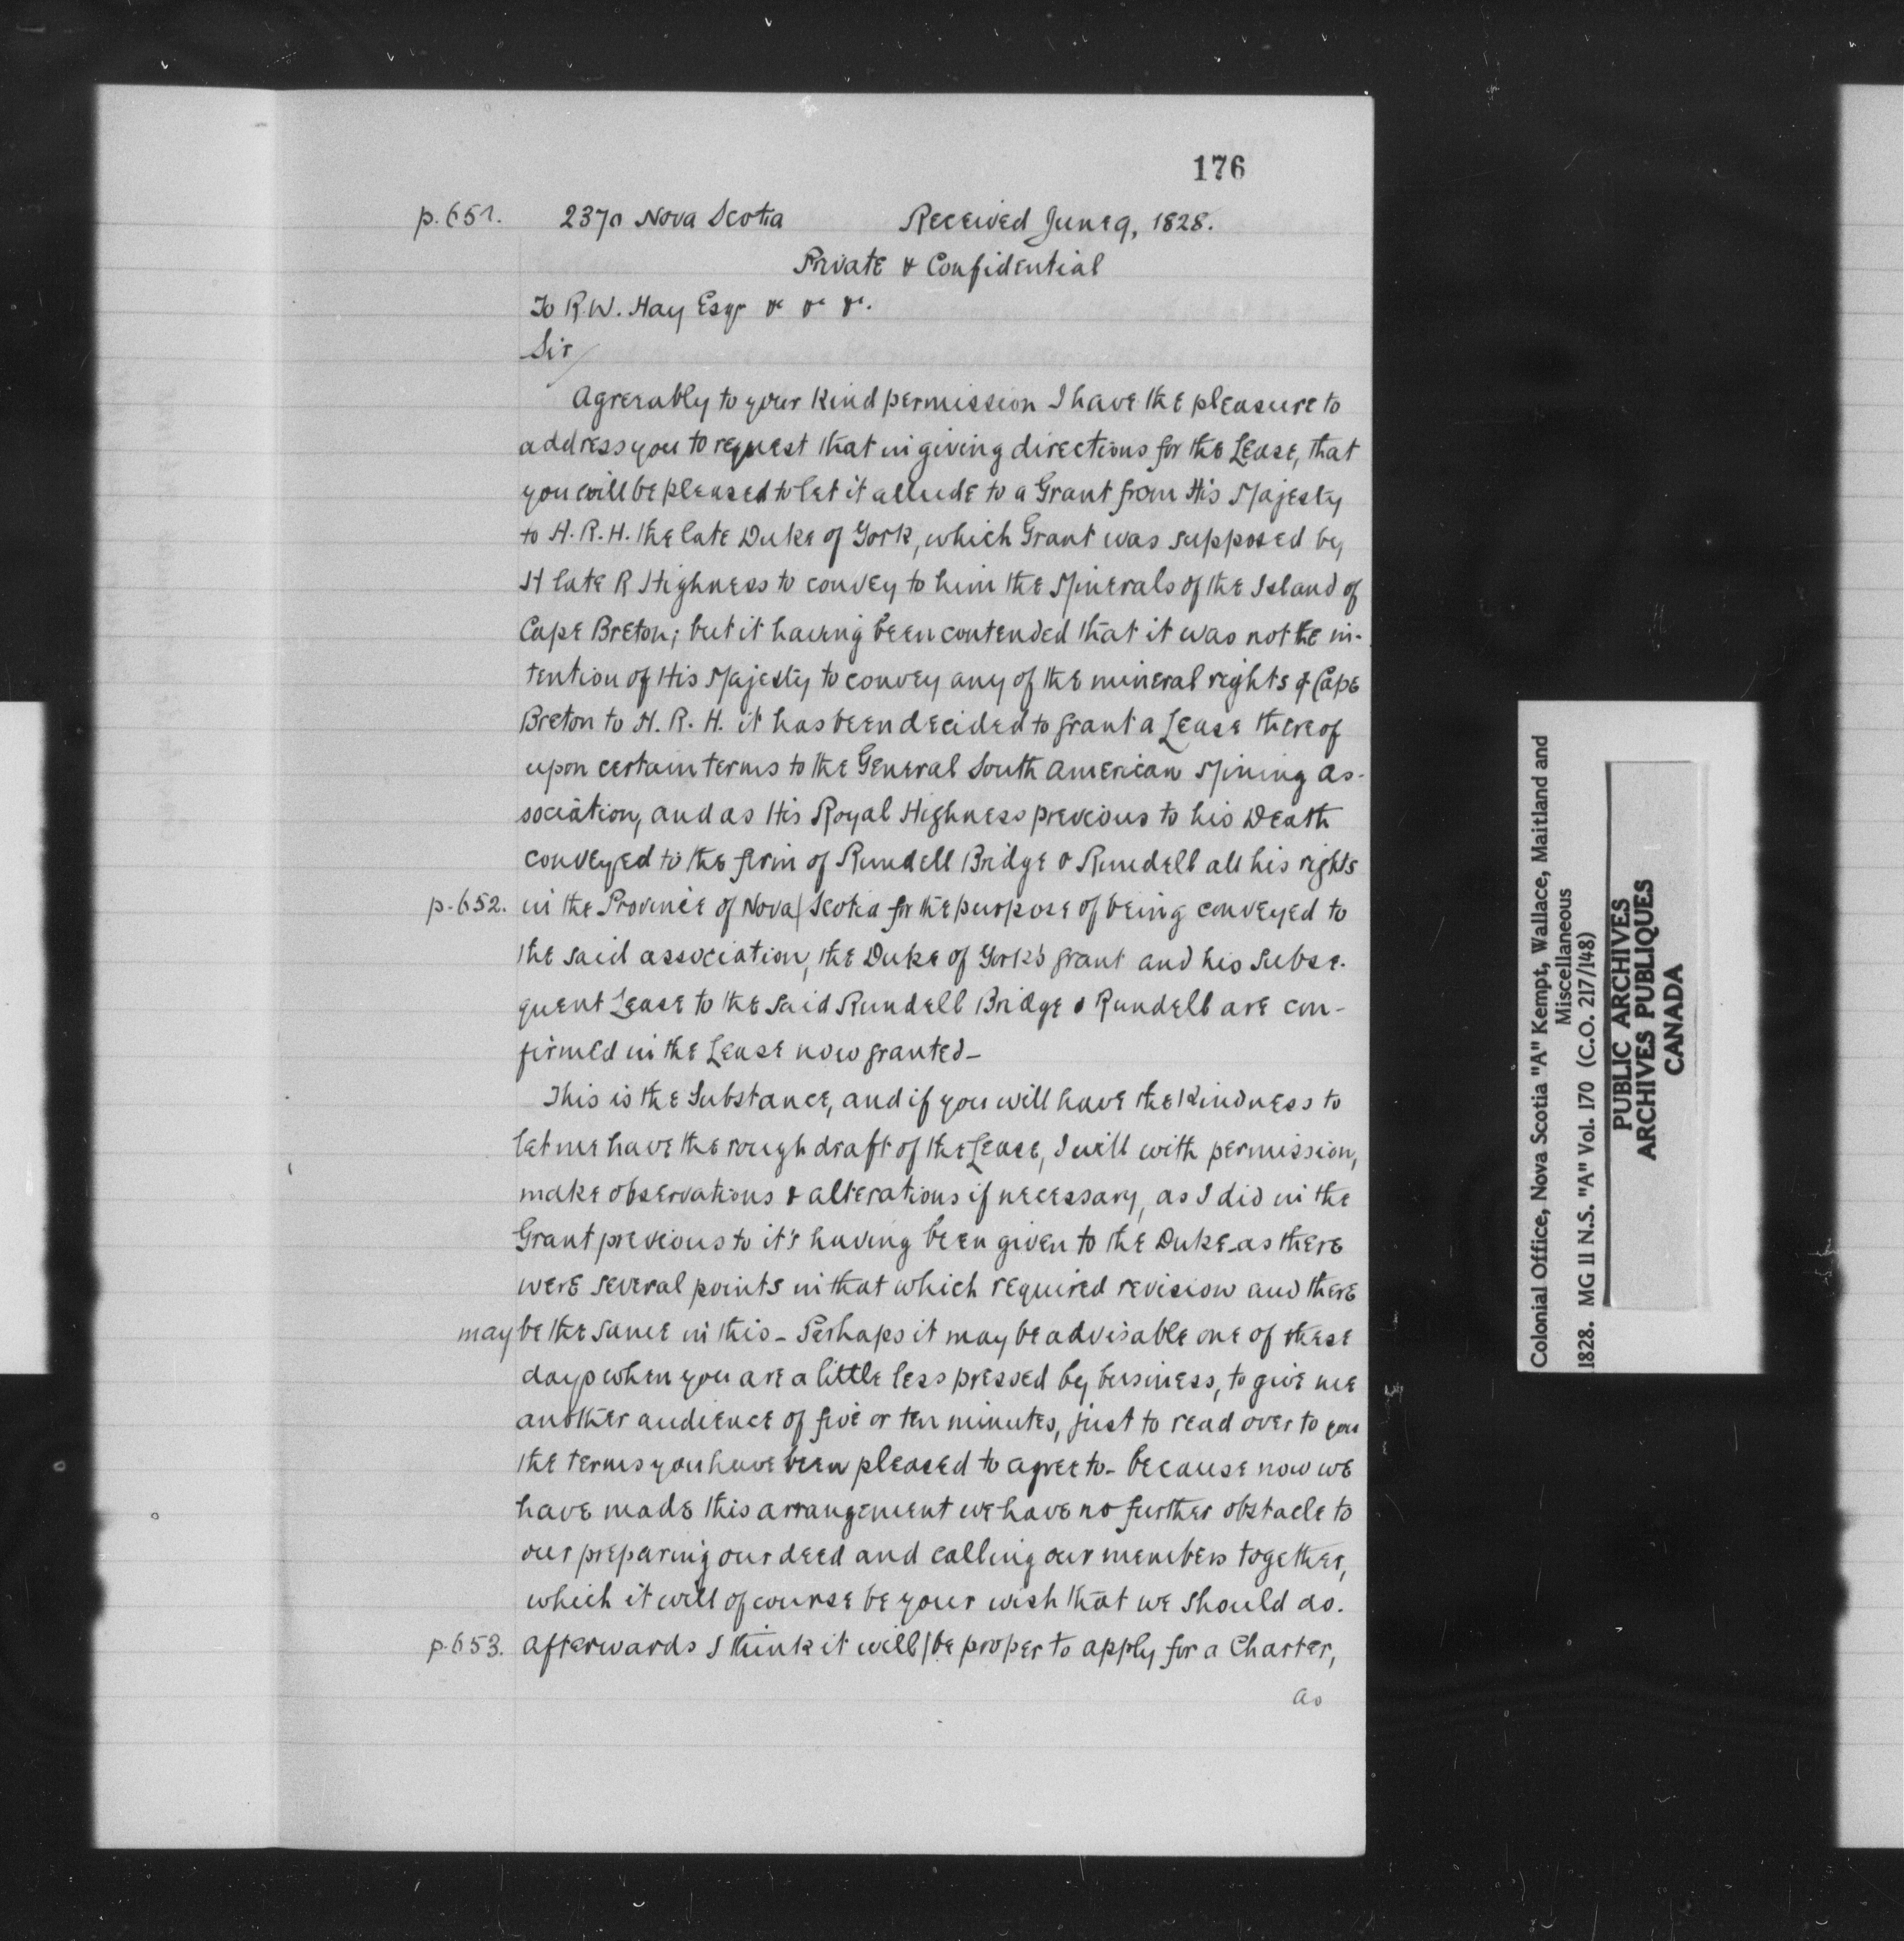 176
p. 651. 2370 Nova Scotia Received June 9, 1828.
Private & Confidential
To R. W. Hay Esqr &c &c &c.
Sir/
Agreeably to your kind permission I have the pleasure to
address you to request that in giving directions for the Lease, that
you will be pleased to let it allude to a Grant from His Majesty
to H. R. H. the late Duke of York, which Grant was supposed by
H late R Highness to convey to him the Minerals of the Island of
Cape Breton; but it having been contended that it was not the in-
tention of His Majesty to convey any of the mineral rights of Cape
Breton to H. R. H. it has been decided to grant a Lease thereof
upon certain terms to the General South American Mining As-
sociation, and as His Royal Highness previous to his Death
conveyed to the firm of Rundell Bridge & Rundell all his rights
p. 652. in the Province of Nova/ Scotia for the purpose of being conveyed to
the said association, the Duke of York's grant and his subse-
quent Lease to the said Rundell Bridge & Rundell are con-
firmed in the Lease now granted-
This is the Substance, and if you will have the kindness to
let me have the rough draft of the Lease, I will with permission,
make observations & alterations if necessary, as I did in the
Grant previous to it's having been given to the Duke-as there
were several points in that which required revision and there
may be the same in this - Perhaps it may be advisable one of these
days when you are a little less pressed by business, to give me
another audience of five or ten minutes, just to read over to you
the terms you have been pleased to agree to - because now we
have made this arrangement we have no further obstacle to
our preparing our deed and calling our members together,
which it will of course be your wish that we should do.
p. 653. Afterwards I think it will/ be proper to apply for a Charter,
as
Colonial Office, Nova Scotia "A" Kempt, Wallace, Maitland and
Miscellaneous
1828. MG 11 N.S. "A" Vol. 170 (C.O. 217/148)
PUBLIC ARCHIVES
ARCHIVES PUBLIQUES
CANADA